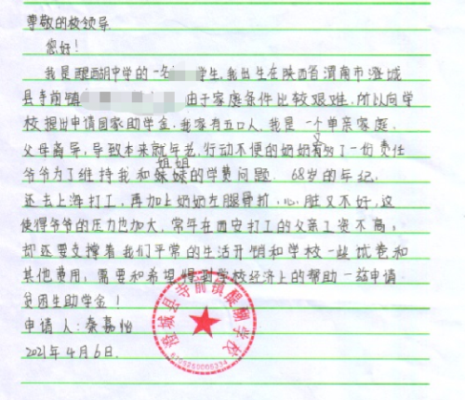 尊敬的校领导
您好!
我是醍醐中学的一名 学生,我出生在陕西省渭南市澄城
县寺前镇 由于家庭条件比较艰难,所以向学
校提出申请国家助学金,我家有五口人,我是一个单亲家庭,
父母离异,导致本来就年老,行动不便的奶奶有 了一份责任
爷爷为了维持我和 姐姐 的学费问题,68岁的年纪
还去上海打工,再加上奶奶左腿骨折,心脏又不好,这
使得爷爷的压力也加大,常年在西安打工的父亲工资不高,
却还要支撑着我们平常的生活开销和学校一些试卷和
其他费用,需要和希望得到学校经济上的帮助 申请
贫困生助学金!
申请人:秦嘉怡
2021年4月6日.
澄城县寺前镇醍醐学校